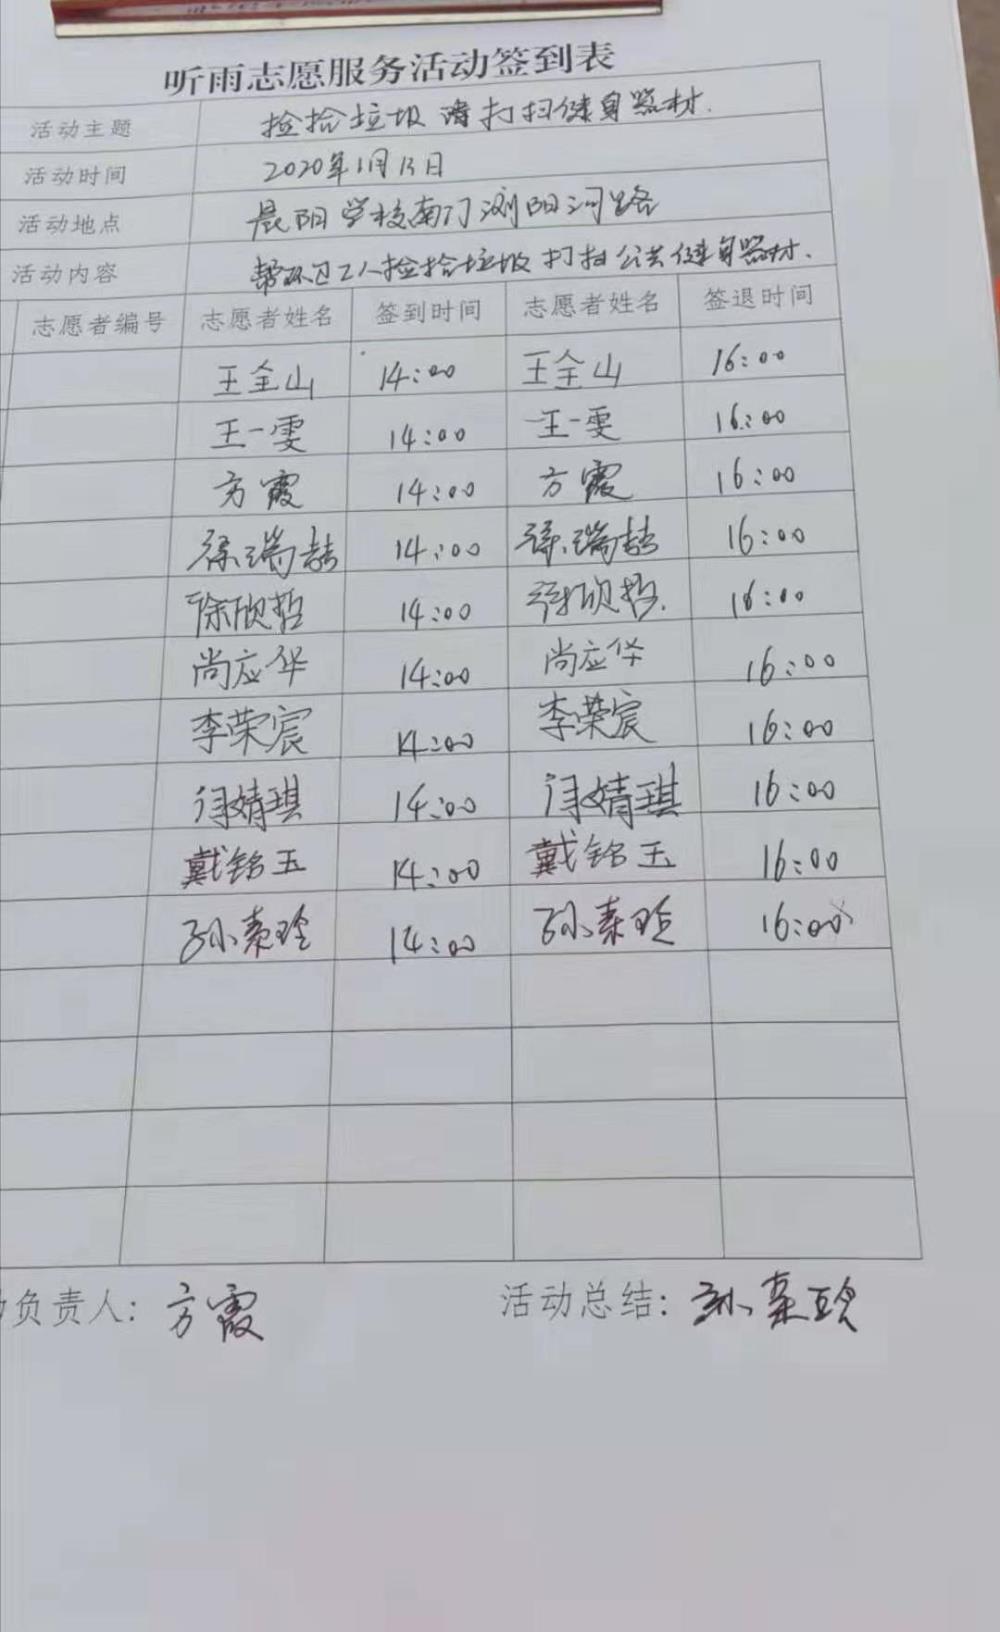 听雨志愿服务活动签到表
活动主题 捡拾垃圾 打扫健身器材.
活动时间 2020年1月13日
活动地点 晨阳学校南门浏阳河路
活动内容 帮环卫工人捡拾垃圾 打扫公共健身器材.
志愿者编号 志愿者姓名 签到时间 志愿者姓名 签退时间
王全山 14:00 王全山 16:00
王一雯 14:00 王一雯 16:00
方霞 14:00 方霞 16:00
徐瑞喆 14:00 徐瑞喆 16:00
徐欣哲 14:00 徐欣哲. 16:00
尚应华 14:00 尚应华 16:00
李荣宸 14:00 李荣宸 16:00
闫婧琪 14:00 闫婧琪 16:00
戴铭玉 14:00 戴铭玉 16:00
孙素玲 14:00 孙素玲 16:00
负责人: 方霞 活动总结: 孙素玲